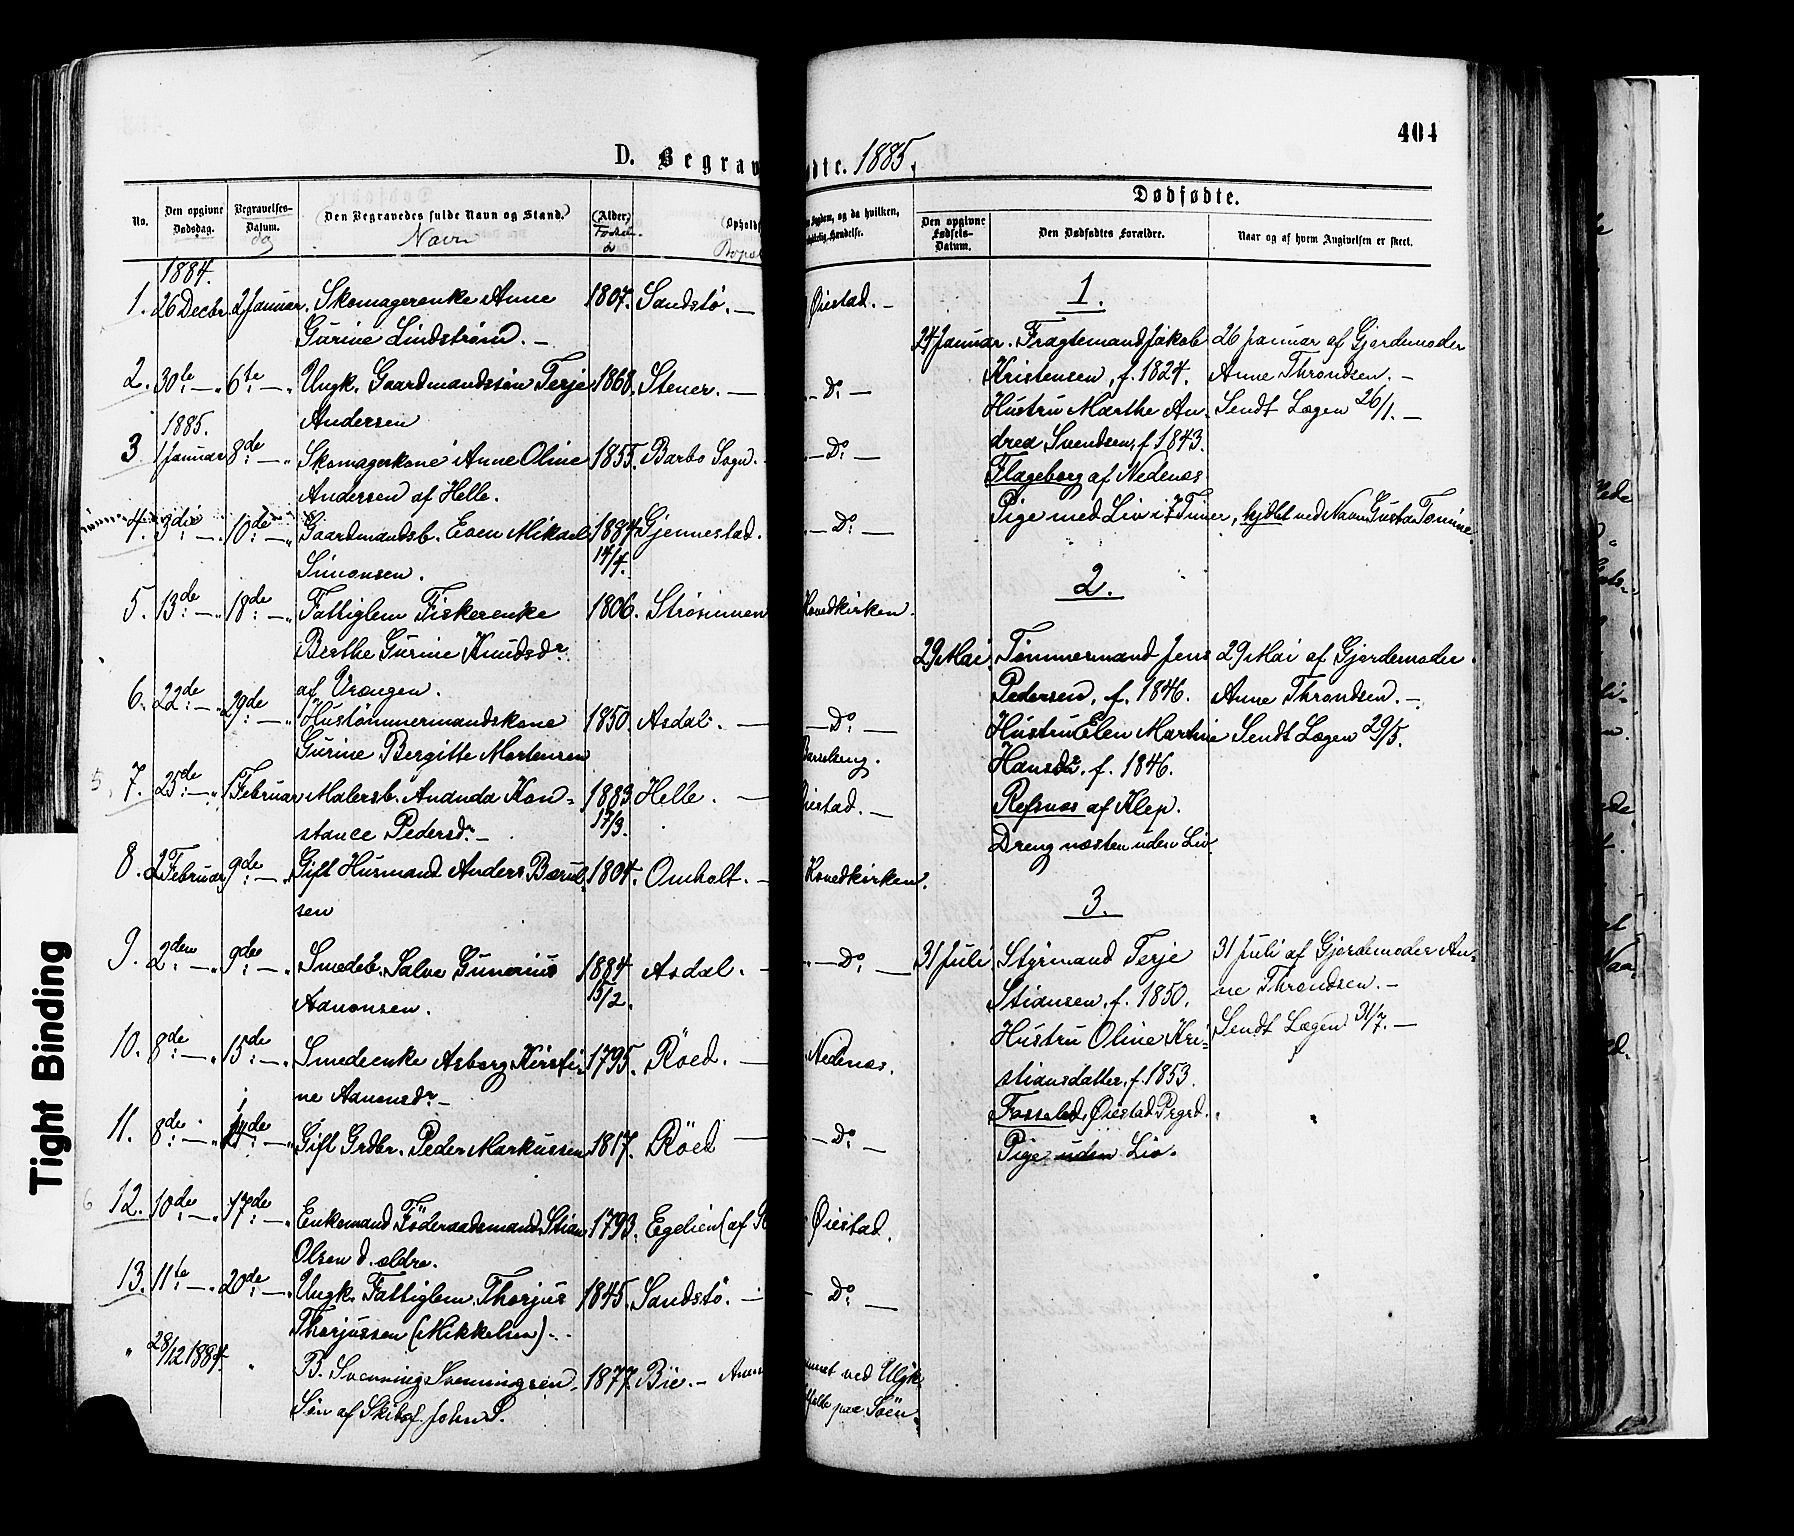 404
D. Begrav
dte. 1885.
No.
Den opgivne Dødsdag.
Begravelses-Datum.
Den Begravedes fulde Navn og Stand.
Navn
(Alder)
Ophold
Sygdom, og da hvilken,
Dødfødte.
Den opgivne Fødsels-Datum.
Den Dødfødtes Forældre.
Naar og af hvem Angivelsen er skeet.
1884.
1. 26 Decbr. 2 Januar. Skomagerenke Anne 1807. Sandstø. — Øiestad. —
Gurine Lindstrøm. —
2. 30te — „ 6te — „ Ungk. Gaardmandssøn Terje 1868. Stener. — — Do —
1885. Andersen
3. 1 Januar 8de — „ Skomagerkone Anne Oline 1855. Barbo Sogn. — Do: —
Andersen af Helle.
4. 3die — „ 10de — „ Gaardmandsb. Even Mikael 1884 Gjennestad. — Do: —
Simonsen. 14/4.
5. 13de — „ 18de — „ Fattiglem Fiskerenke 1806. Strømmen Hovedkirken.
Berthe Gurine Knudsdr.
af Vrængen.
6. 22de — „ 29de — „ Hustømmermandskone 1850. Asdal. — — Do: —
Gurine Bergitte Mortensen Barselseng.
5
7. 25de — „ 1 Februar Malersb. Ananda Kon= 1883 Helle. — Øiestad. —
stance Pedersdr. — 17/3.
8. 2 Februar 9de — „ Gift Husmand Anders Bærul 1804. Omholt. — Hovedkirken.
sen
9. 2den — „ 9de — „ Smedeb. Salve Gunerius 1884 Asdal. — — Do: —
Aanonsen. 15/2.
10. 8de — „ 15de — „ Smedenke Asborg Kirsti= 1795. Røed. — Nedenæs.
ne Aanonsdr. —
11. 8de — „ — „ Gift Grdbr. Peder Markussen 1817. Røed — — Do: —
6
12. 10de — „ 17de — „ Enkemand Föderaadsmand Stian 1793. Egelien (af Øiestad.
Olsen d. ældre.
13. 11te — „ 20de — „ Ungk. Fattiglem Thorjus 1845. Sandstö. — — Do: —
Thorjussen (Mikkelsen). —
„ 28/12 1884. „ B. Svenning Svenningsen, 1877. Bie. — ved
Søn af John S. paa Søen.
1.
24 Januar. Fragtemand Jakob 26 Januar af Gjordemoder
Kristensen, f. 1824. Anne Throndsen. —
Hustru Marthe An Sendt Lægen 26/1. —
drea Svendsen, f. 1843.
Flageborg af Nedenæs
Pige med Liv i 7 Timer, hjdbt ved Navn Gusta Tomine.
2.
29 Mai. Tømmermand Jens 29 Mai af Gjordemoder
Pedersen, f. 1846. Anne Throndsen. —
Hustru Elen Martine Sendt Lægen 29/5.
Hansdr. f. 1846.
Refsnæs af Klep.
Dreng næsten uden Liv.
3.
31 Juli Styrmand Terje 31 Juli af Gjordemoder An=
Stiansen, f. 1850. ne Throndsen. —
Hustru Oline Kri= Sendt Lægen 31/7. —
stiansdatter, f. 1853.
Øiestad Prgrd.
Pige uden Liv.
Tight Binding